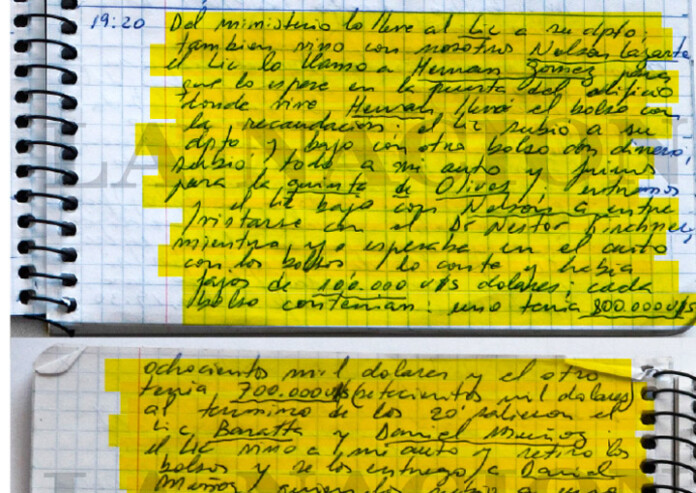 19:20 Del ministerio lo lleve al Lic a su dpto,
tambien vino con nosotros Nelson Lazarte
el Lic lo llamo a Hernan Gomez para
que lo espere en la puerta del edificio
donde vive Hernan llevó el bolso con
la recaudacion; el Lic subió a su
dpto y bajo con otro bolso con dinero
subió todo a mi auto y fuimos
para la quinta de Olivos; entramos
y el Lic bajo con Nelson a entre
vistarse con el Dr Nestor Kirchner,
mientras yo esperaba en el auto
con los bolsos lo conte y habia
fajos de 100.000 u$s dolares; cada
bolso contenian: uno tenia 800.000 u$s
ochocientos mil dolares y el otro
tenia 700.000 u$s (setecientos mil dolares)
al termino de los 20' salieron el
Lic Baratta y Daniel Muñoz
el Lic vino a mi auto y retiro los
bolsos y se los entrego a Daniel
Muñoz
LA NACION